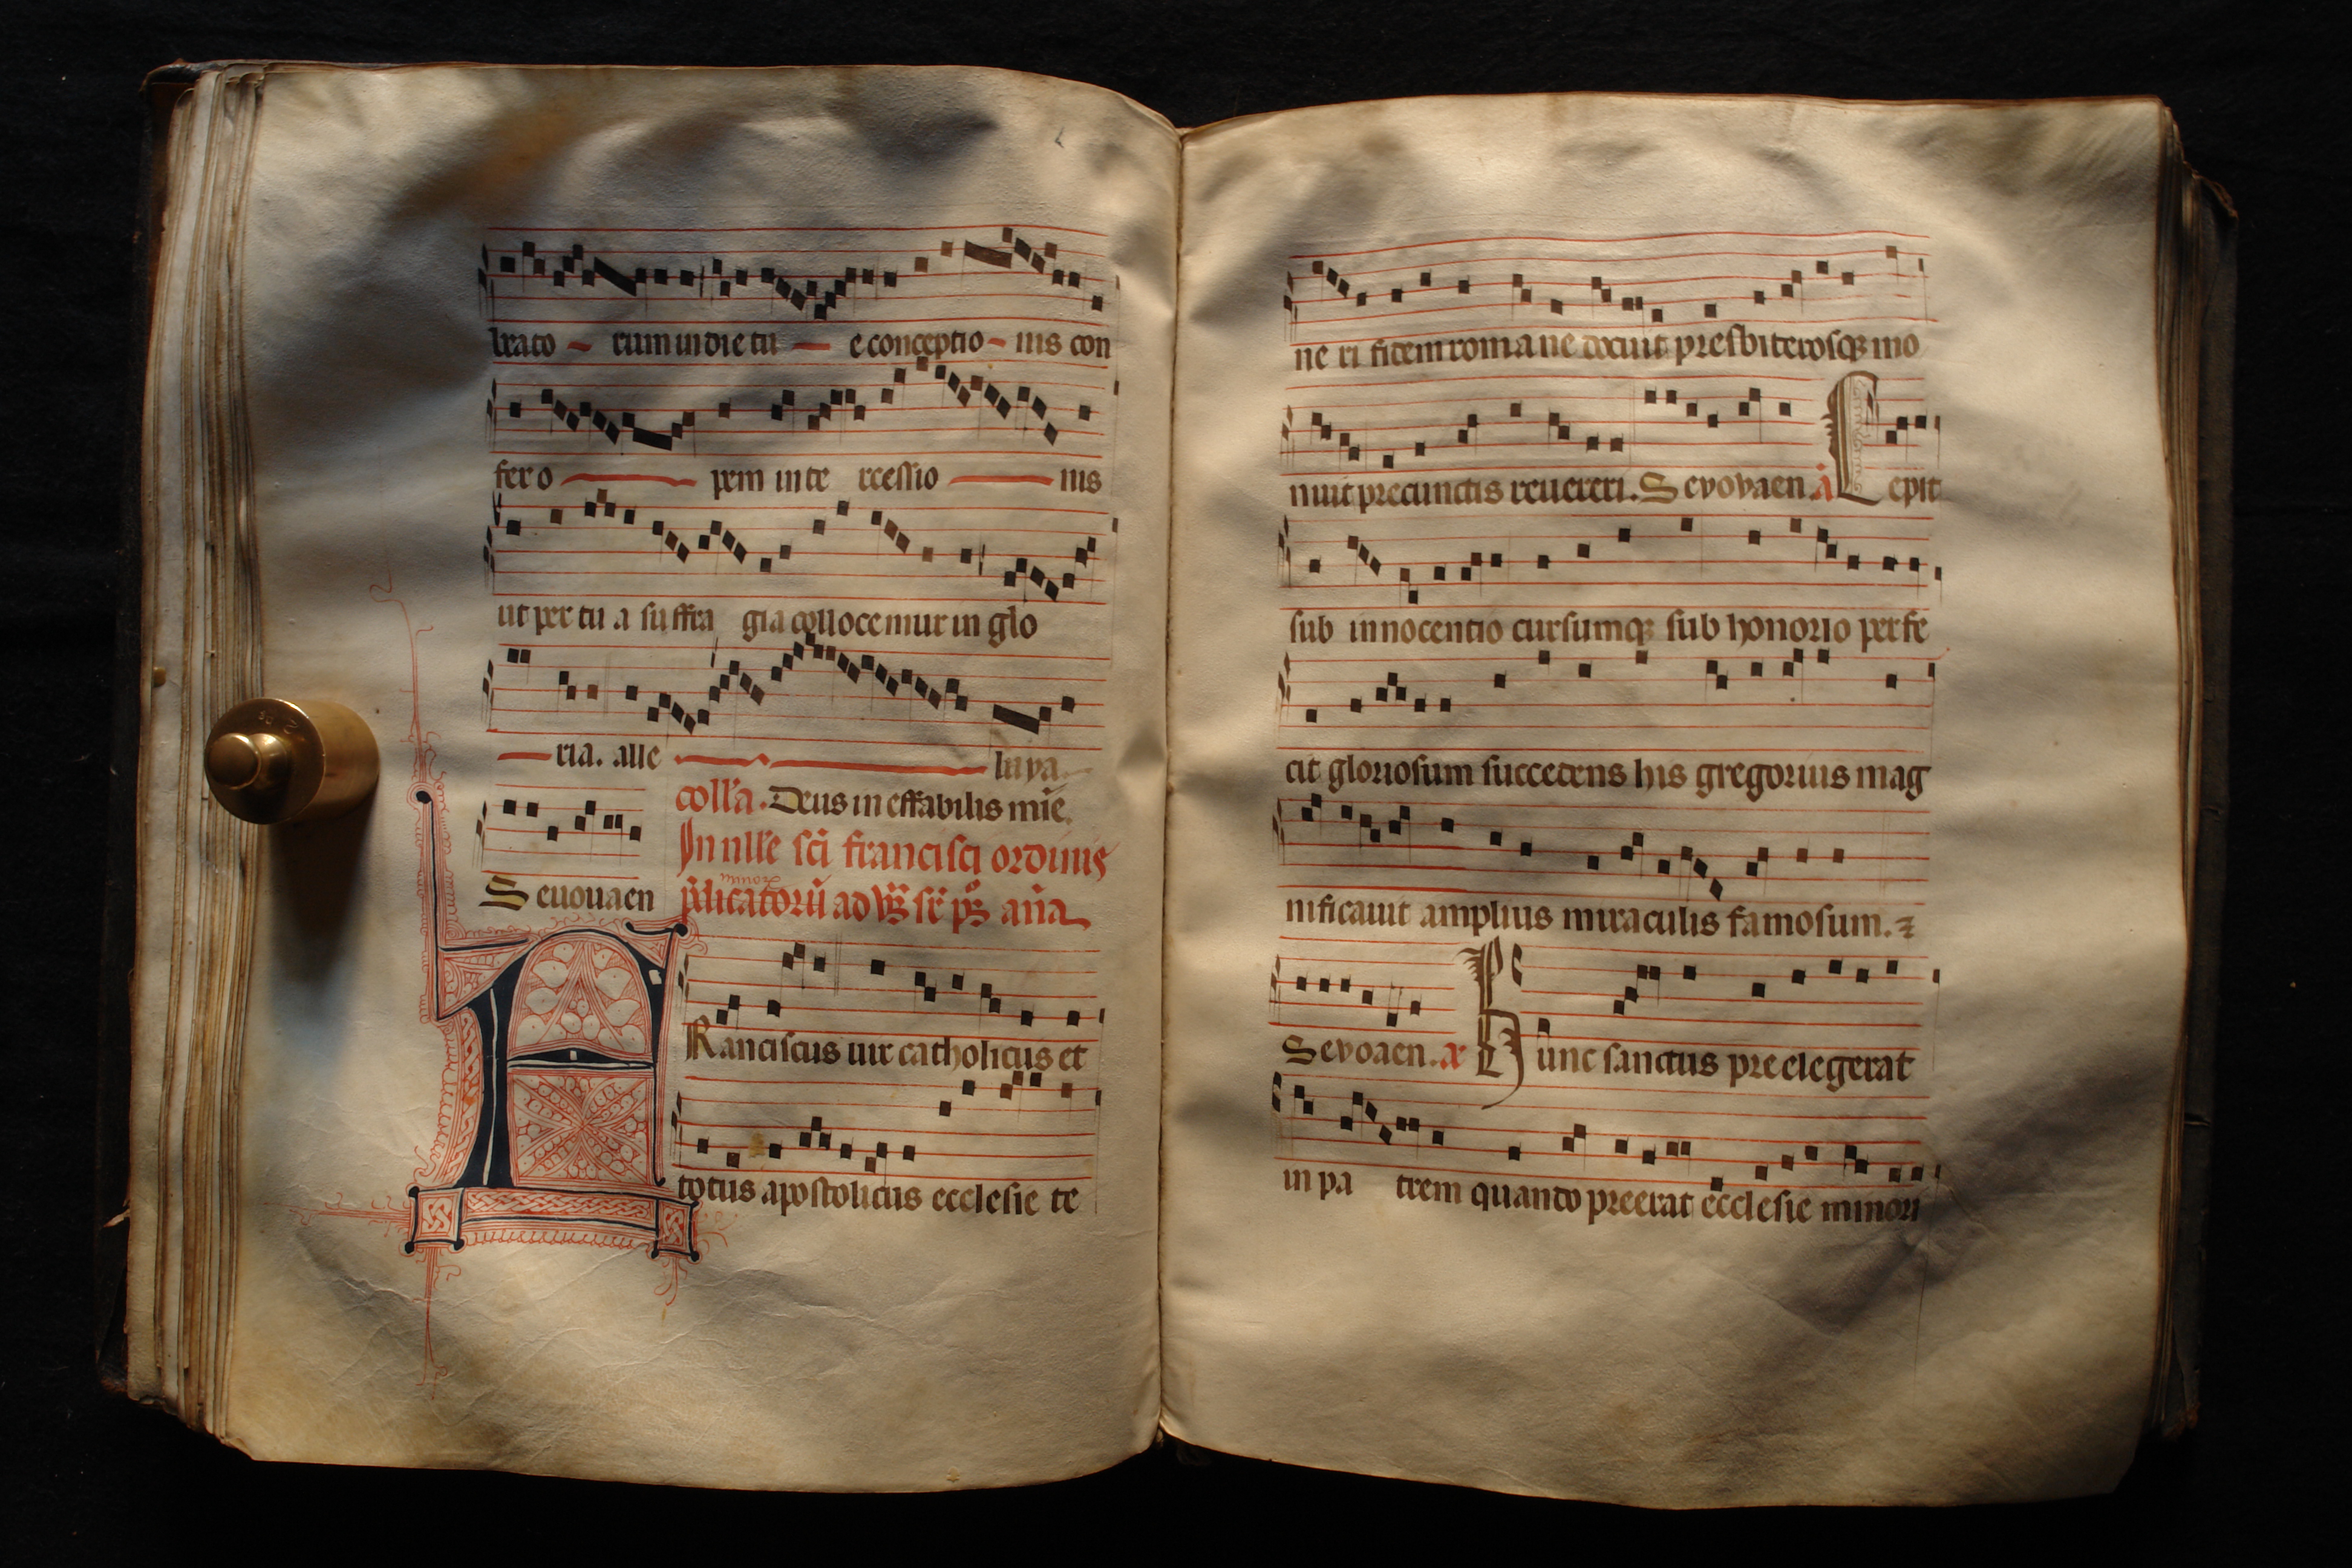 brato rum in die tu e conceptio nis con
fer o pem in te rcessio nis
ut per tu a suffra gia collocemur in glo
ria. alle luya.
coll'a. Deus in effabilis mie.
In nll'e sci francisci ordinis
minor
p'dicatoru ad vs sr ps ana
Seuouaen
FRanciscus uir catholicus et
totus apostolicus ecclesie te
ne ri fidem romane docuit presbiterosq mo
nuit pre cunctis reuereri. Sevovaen. a Cepit
sub innocentio cursumq sub honorio perfe
cit gloriosum succedens his gregorius mag
nificauit amplius miraculis famosum.
Sevoaen. a Hunc sanctus preelegerat
in pa trem quando preerat ecclesie minori